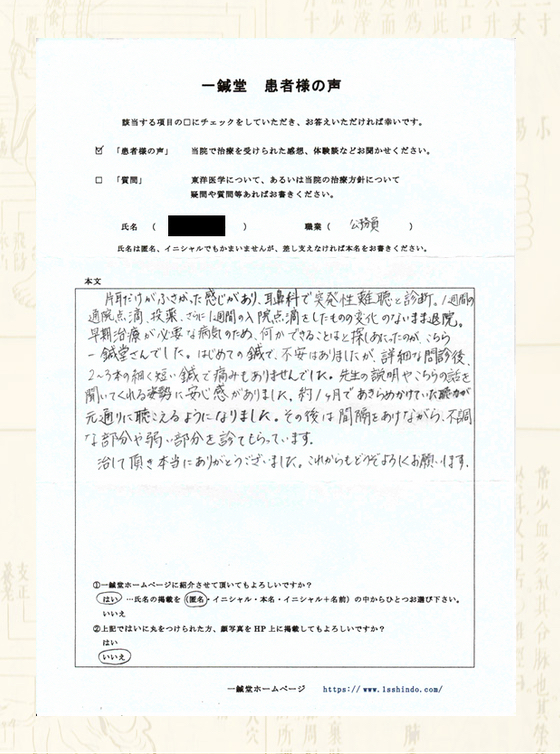 一鍼堂　患者様の声
該当する項目の□にチェックをしていただき、お答えいただければ幸いです。
☑ 「患者様の声」　当院で治療を受けられた感想、体験談などお聞かせください。
□ 「質問」　東洋医学について、あるいは当院の治療方針について
疑問や質問等あればお書きください。
氏名　（　　　　）　職業（　公務員　）
氏名は匿名、イニシャルでもかまいませんが、差し支えなければ本名をお書きください。
本文
片耳だけがふさがった感じがあり、耳鼻科で突発性難聴と診断。1週間の
通院点滴、投薬、さらに1週間の入院点滴をしたものの変化のないまま退院。
早期治療が必要な病気のため、何かできることはと探しあたったのが、こちら
一鍼堂さんでした。はじめての鍼で、不安はありましたが、詳細な問診後、
2〜3本の細く短い鍼で痛みもありませんでした。先生の説明やこちらの話を
聞いてくれる姿勢に安心感がありました。約1ヶ月であきらめかけていた聴力が
元通りに聴こえるようになりました。その後は間隔をあけながら、不調
な部分や弱い部分を診てもらっています。
治して頂き本当にありがとうございました。これからもどうぞよろしくお願いします。
①一鍼堂ホームページに紹介させて頂いてもよろしいですか？
はい　…氏名の掲載を（匿名・イニシャル・本名・イニシャル＋名前）の中からひとつお選び下さい。
いいえ
②上記ではいに丸をつけられた方、顔写真をHP上に掲載してもよろしいですか？
はい
いいえ
一鍼堂ホームページ　https://www.1sshindo.com/